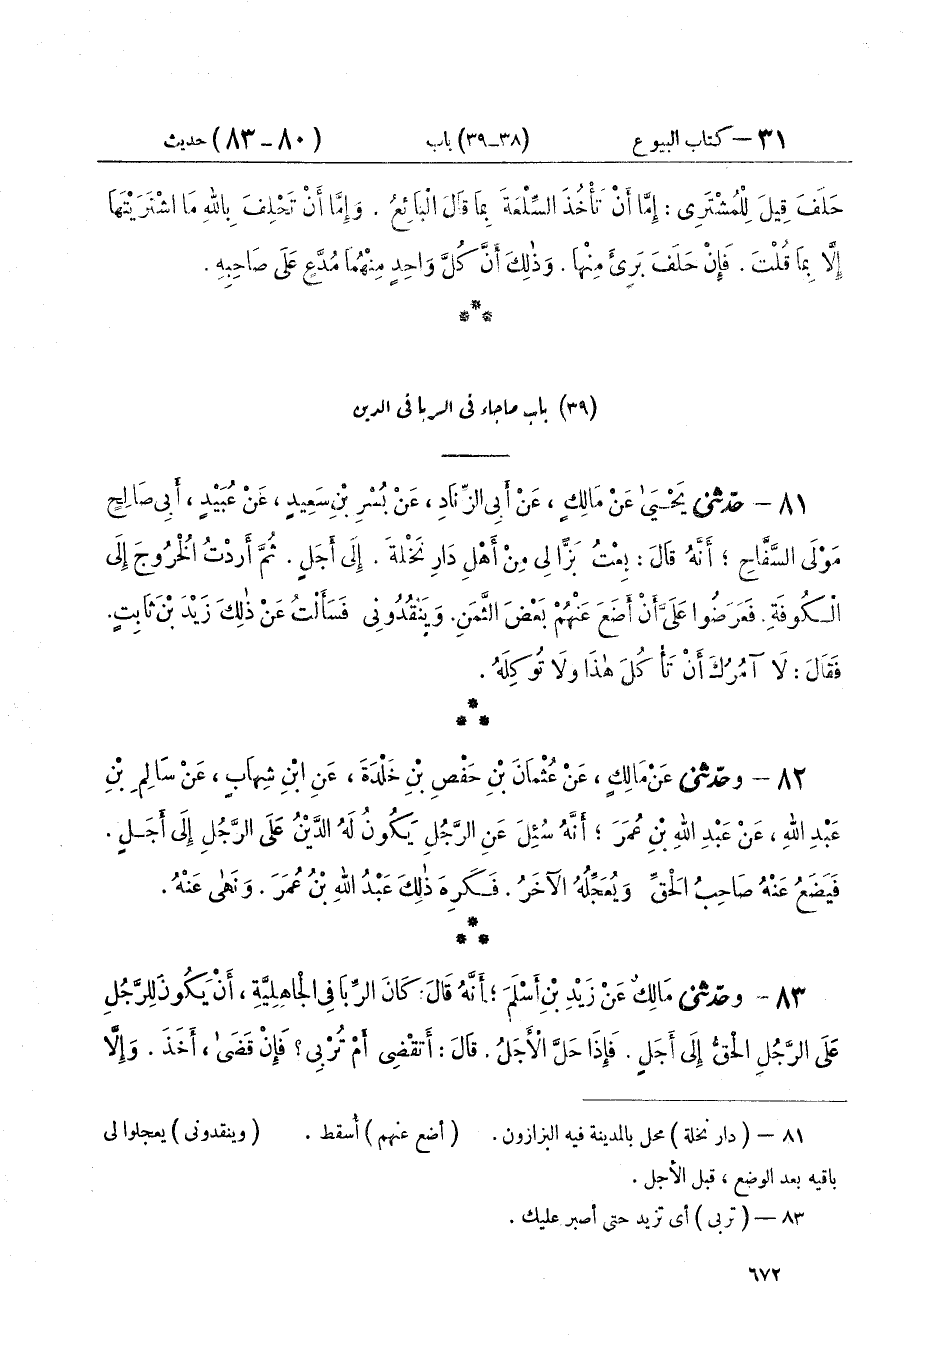 ٣١ – كتاب البيوع (٣٨-٣٩) باب (٨٠ - ٨٣) حديث
حَلَفَ قِيلَ لِلْمُشْتَرِى : إِمَّا أَنْ تَأْخُذَ السِّلْعَةَ بِمَا قَالَ الْبَائِعُ . وَإِمَّا أَنْ تَحْلِفَ بِاللهِ مَا اشْتَرَيْتَهَا
إِلَّا بِمَا قُلْتَ . فَإِنْ حَلَفَ بَرِئَ مِنْهَا . وَذٰلِكَ أَنَّ كُلَّ وَاحِدٍ مِنْهُمَا مُدَّعٍ عَلَى صَاحِبِهِ .
* * *
(٣٩) باب ماجاء فى الربا فى الدين
٨١ – حدّثنى يَحْيَىٰ عَنْ مَالِكٍ ، عَنْ أَبِى الزِّنَادِ ، عَنْ بُسْرِ بْنِ سَعِيدٍ ، عَنْ عُبَيْدٍ ، أَبِى صَالِحٍ
مَوْلَى السَّفَّاحِ ؛ أَنَّهُ قَالَ : بِعْتُ بَزًّا لِى مِنْ أَهْلِ دَارِ نَخْلَةَ . إِلَى أَجَلٍ . ثُمَّ أَرَدْتُ الْخُرُوجَ إِلَى
الْكُوفَةِ . فَعَرَضُوا عَلَىَّ أَنْ أَضَعَ عَنْهُمْ بَعْضَ الثَّمَنِ . وَيَنْقُدُونِى فَسَأَلْتُ عَنْ ذٰلِكَ زَيْدَ بْنَ ثَابِتٍ .
فَقَالَ : لَا آمُرُكَ أَنْ تَأْكُلَ هٰذَا وَلَا تُوكِلَهُ .
* * *
٨٢ – وحدّثنى عَنْ مَالِكٍ ، عَنْ عُثْمَانَ بْنِ حَفْصِ بْنِ خَلْدَةَ ، عَنِ ابْنِ شِهَابٍ ، عَنْ سَالِمِ بْنِ
عَبْدِ اللهِ ، عَنْ عَبْدِ اللهِ بْنِ عُمَرَ ؛ أَنَّهُ سُئِلَ عَنِ الرَّجُلِ يَكُونُ لَهُ الدَّيْنُ عَلَى الرَّجُلِ إِلَى أَجَلٍ .
فَيَضَعُ عَنْهُ صَاحِبُ الْحَقِّ وَيُعَجِّلُهُ الْآخَرُ . فَكَرِهَ ذٰلِكَ عَبْدُ اللهِ بْنُ عُمَرَ . وَنَهَى عَنْهُ .
* * *
٨٣ - وحدّثنى مَالِكٌ عَنْ زَيْدِ بْنِ أَسْلَمَ ؛ أَنَّهُ قَالَ : كَانَ الرِّبَا فِى الْجَاهِلِيَّةِ ، أَنْ يَكُونَ لِلرَّجُلِ
عَلَى الرَّجُلِ الْحَقُّ إِلَى أَجَلٍ . فَإِذَا حَلَّ الْأَجَلُ . قَالَ : أَتَقْضِى أَمْ تُرْبِى ؟ فَإِنْ قَضَى ، أَخَذَ . وَإِلَّا
٨١ – ( دار نخلة ) محل بالمدينة فيه البزازون . ( أضع عنهم ) أسقط . ( وينقدونى ) يعجلوا لى
باقيه بعد الوضع ، قبل الأجل .
٨٣ – ( تربى ) أى تزيد حتى أصبر عليك .
٦٧٢